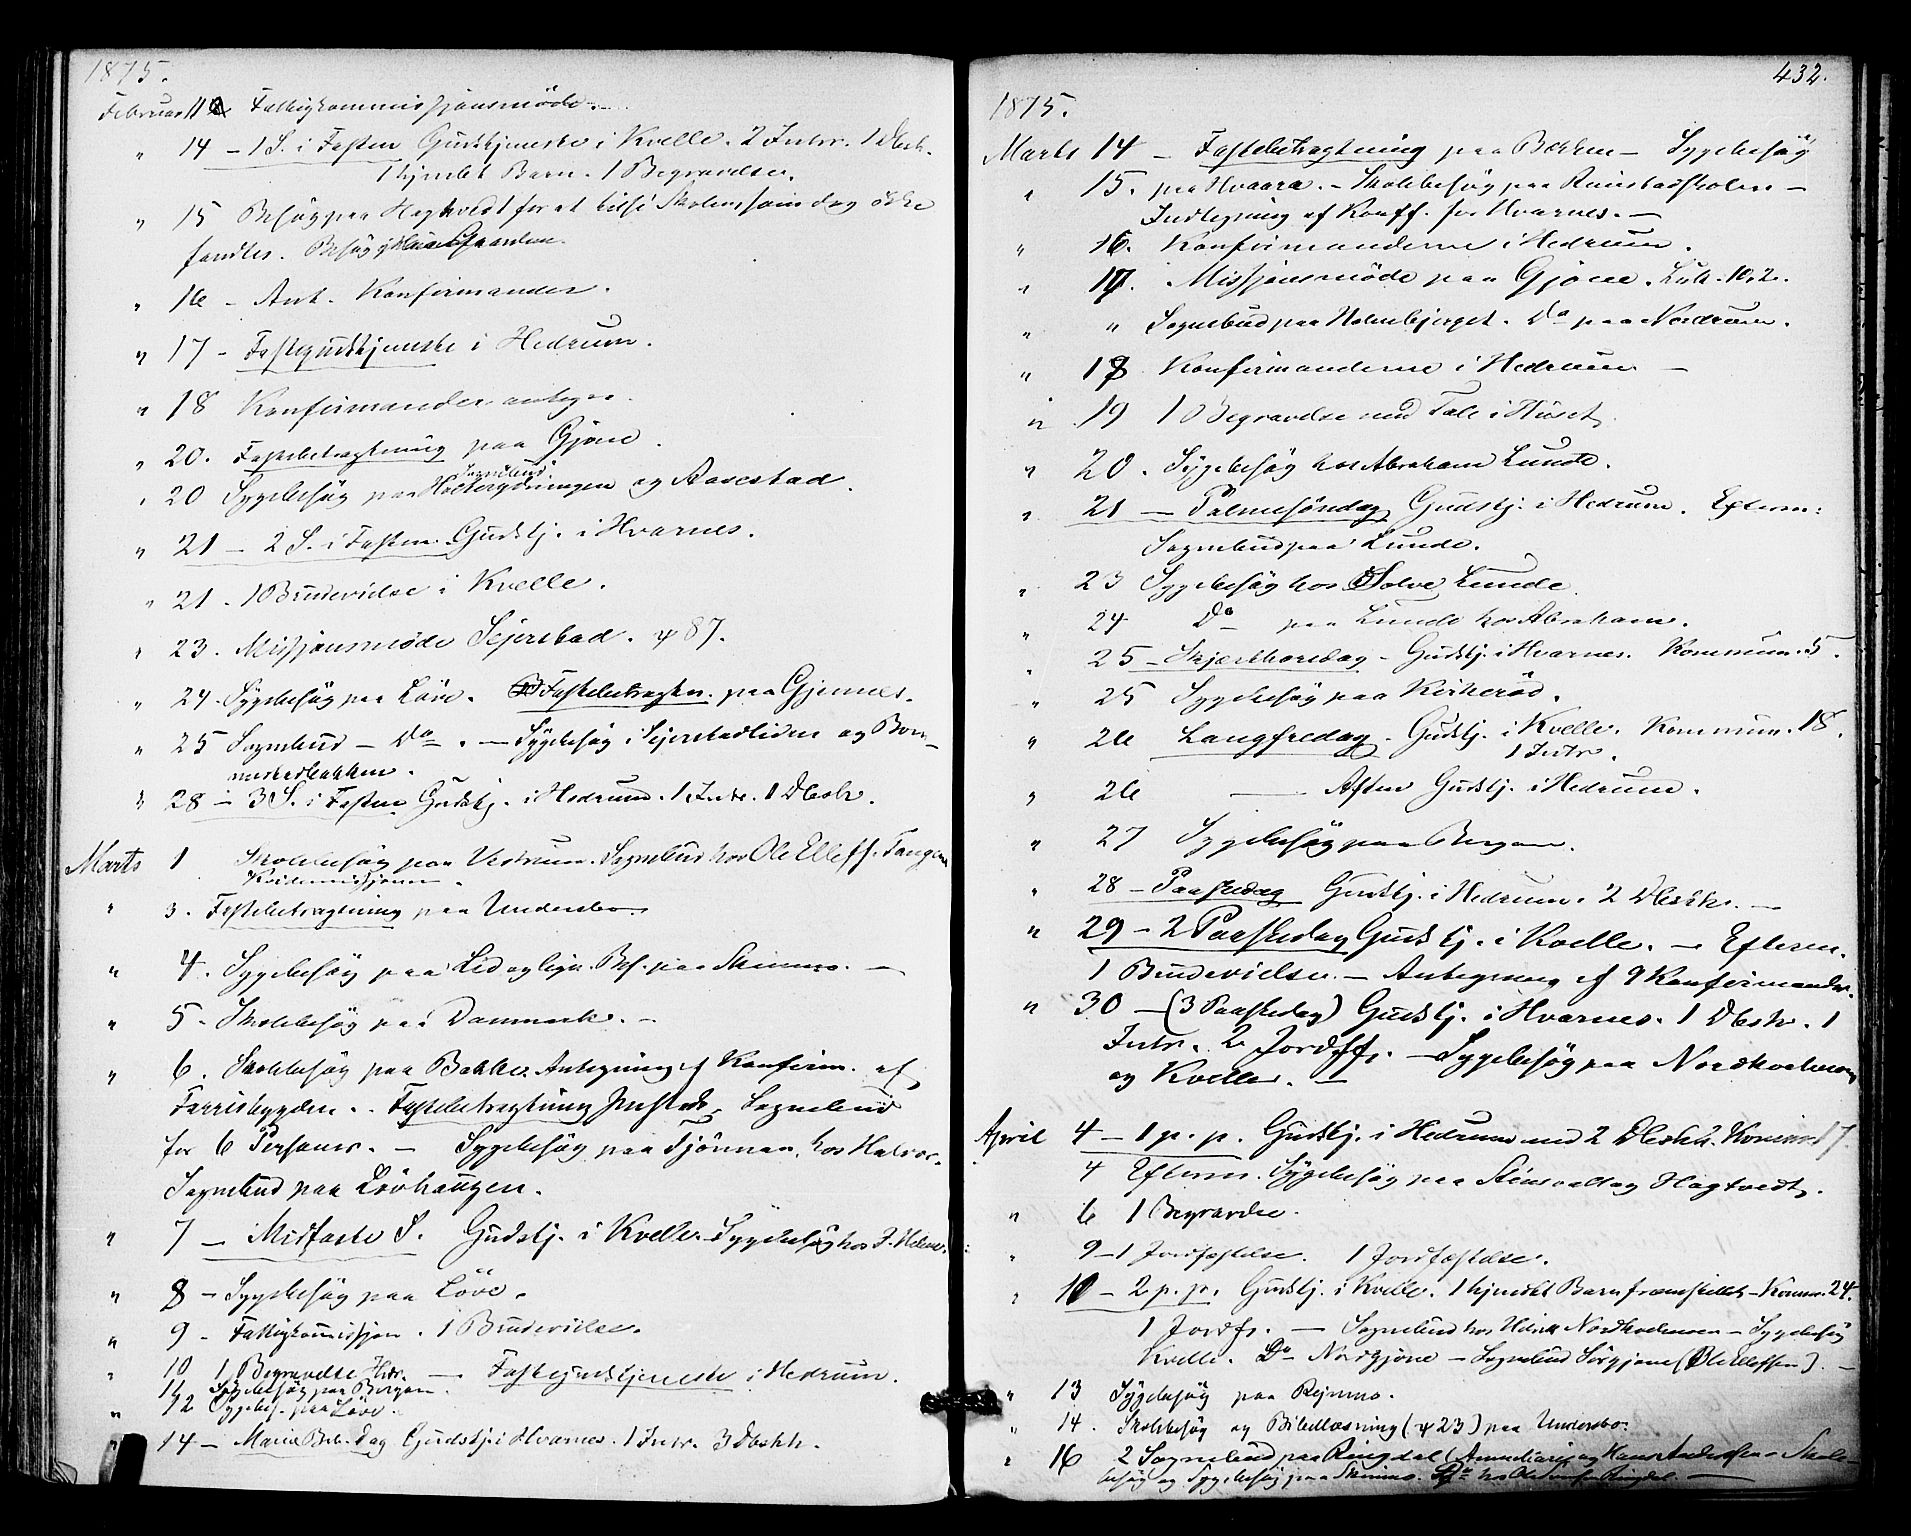 1875.
Februar 11 Fattigkommissjonsmöde.
" 14 – 1 S. i Fasten Gudstjeneste i Kvelle. 2 Intr. 1 Dbsh.
1 hjmdbt Barn. 1 Begravelse.
" 15 Besög paa Hagtvedt for at tilse Skolen som dog ikke
fandtes. Besög
" 16 – Ant. Konfirmander.
" 17 – Fastegudstjeneste i Hedrum.
" 18 Konfirmander antegn.
" 20. Fastebetragtning paa Gjone.
" 20 Sygebesög paa og Aasestad.
" 21 – 2 S. i Fasten. Gudstj. i Hvarnes.
" 21. 1 Brudevielse i Kvelle.
" 23. Missjonsmöde Sejerstad. ψ 87.
" 24. Sygebesög paa Löve. Fastebetragtn. paa Gjennes.
" 25 Sognebud – Do – Sygebesög i Sejerstadliden og Bom-
mestadbakken.
" 28 – 3 S. i Fasten Gudstj. i Hedrum. 1 Intr. 1 Dbsh.
Marts 1 Skolebesög paa Vestrum. Sognebud hos Ole Elleff. Tangen
Kvindemissjonen.
" 3. Fastebetragtning paa Undersbo.
" 4. Sygebesög paa Lid og lign. Bes. paa Skinmo. –
" 5. Skolebesög paa Danmark. –
" 6. Skolebesög paa Bakke. Antegning af Konfirm. af
Farrisbygden. Fastebetragtning Sognebud
for 6 Personer. – Sygebesög paa Tjönnan hos Halvor.
Sognebud paa Lövhaugen.
" 7 – Midfaste S. Gudstj. i Kvelle. Sygebesög hos
" 8 – Sygebesög paa Löve.
" 9 – Fattigkommissjon. 1 Brudevielse.
" 10 1 Begravelse Hdr. – Fastegudstjeneste i Hedrum.
11 Sygebesög paa Bergan.
" 12 Sygebes. paa Löve.
14 – Mariæ Beb. Dag Gudstj. i Hvarnes. 1 Intr. 3 Dbshh.
432.
1875.
Marts 14 – Fastebetragtning paa Bakken – Sygebesög
" 15. paa Hvaara. – Skolebesög paa Rimstadskolen –
Indtegning af Konff. for Hvarnes. –
" 16. Konfirmanderne i Hedrum.
" 17. Missjonsmöde paa Gjone. Luk. 10, 2.
" " Sognebud paa Holmbjerget. Do paa Nordrum.
" 18 Konfirmanderne i Hedrum –
" 19 1 Begravelse med Tale i Huset.
" 20. Sygebesög hos Abraham Lunde.
" 21 – Palmesöndag Gudstj. i Hedrum. Efterm:
Sognebud paa Lunde.
" 23 Sygebesög hos Solve Lunde.
" 24 Do – paa Lunde hos Abraham.
" 25 – Skjærthorsdag – Gudstj. i Hvarnes. Kommun. 5.
" 25 Sygebesög paa Kirkeröd.
" 26 Langfredag. Gudstj. i Kvelle. Kommun. 18.
1 Intr.
" 26 – Aften Gudstj. i Hedrum.
" 27 Sygebesög paa Bergan.
" 28 – Paaskedag Gudstj. i Hedrum. 2 Dbshh. –
" 29 – 2 Paaskedag Gudstj. i Kvelle. – Efterm.
1 Brudevielse. – Antegning af 9 Konfirmander.
" 30 – (3 Paaskedag) Gudstj. i Hvarnes. 1 Dbsh. 1
Intr. 2 Jordff. – Sygebesög paa Nordkvelle
og Kvelle. –
April 4 – 1 p. p. Gudstj. i Hedrum med 2 Dbshh. Kommun 17
4 Efterm. Sygebesög paa og Hagtvedt.
" 6 1 Begravelse.
" 9 – 1 Jordfæstelse. 1 Jordfæstelse.
" 10 – 2 p. p. Gudstj. i Kvelle. 1 hjmdbt Barn fremstillet – Komm. 24.
1 Jordfs. – Sognebud hos – Sygebesög
Kvelle. Do Nordgjone – Sognebud Sörgjone (Ole Elleffsen). –
" 13 Sygebesög paa Rejnmo.
" 14. Skolebesög og Bibellæsning (ψ 23) paa Undersbo.
" 16 2 Sognebud paa Ringdal ( og Hans Andersen – Skole-
besög og Sygebesög paa Skinmo. Do hos Ringdal. –